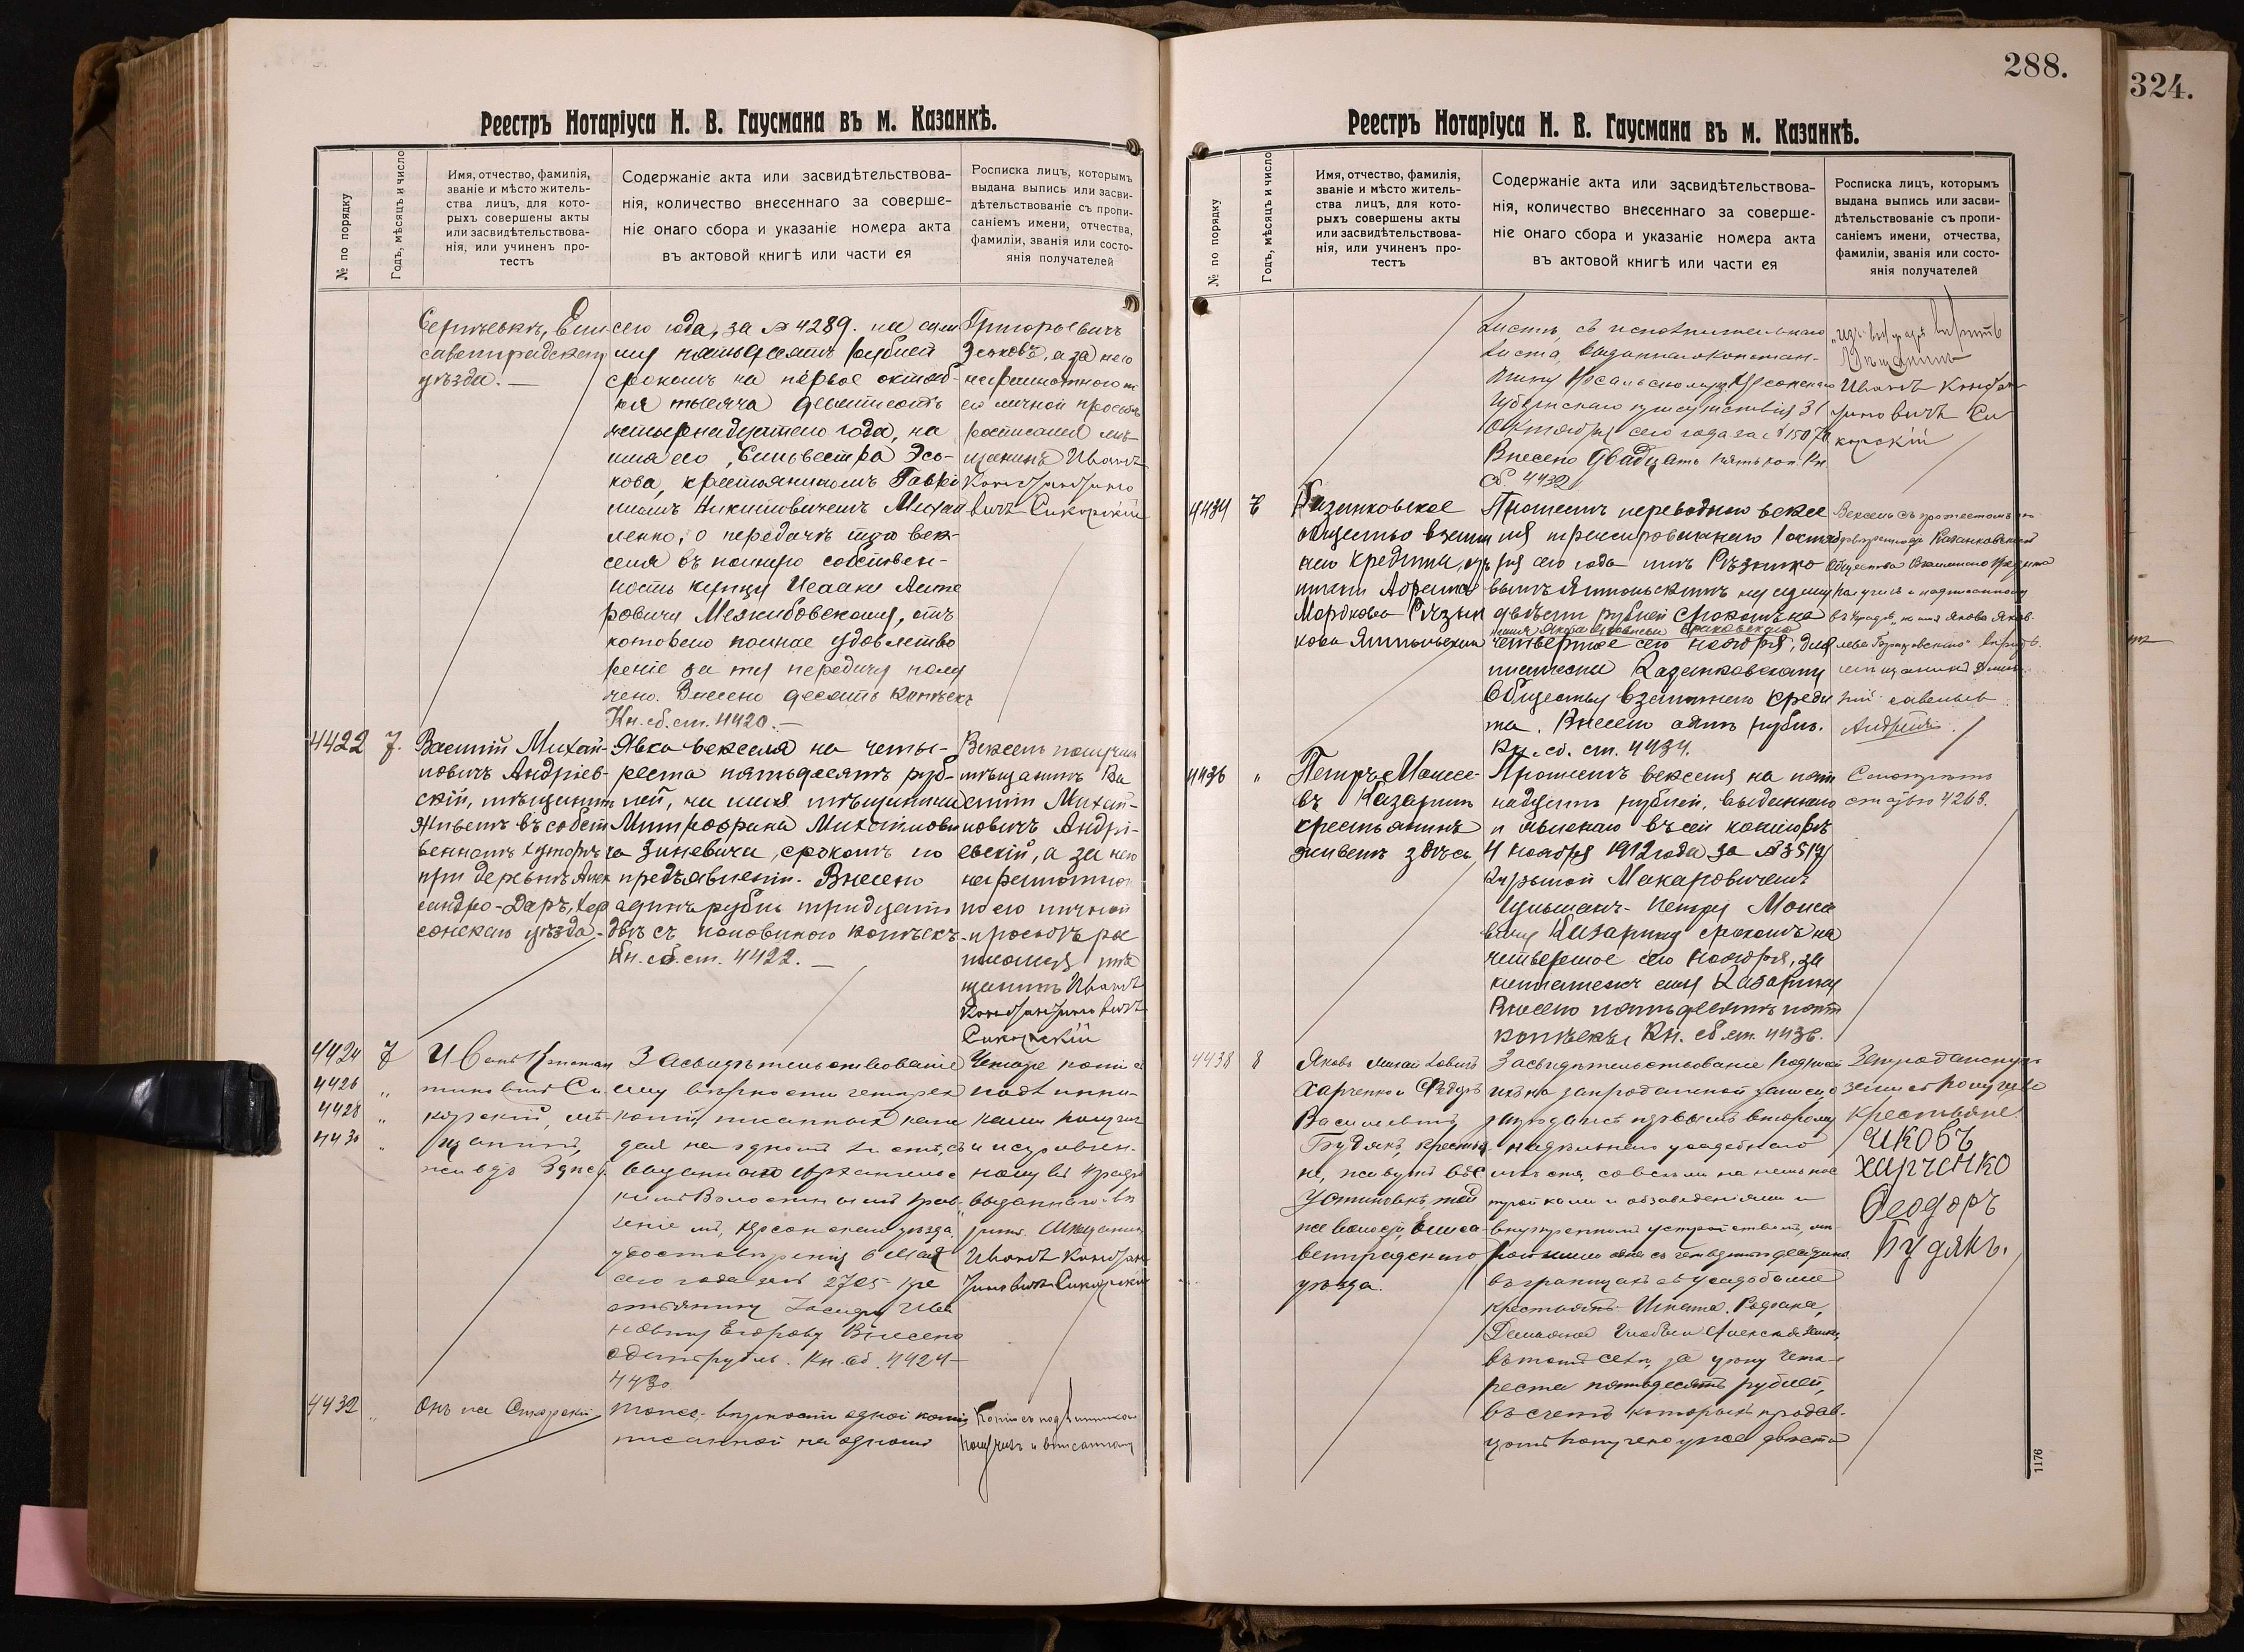 Реестръ Нотаріуса Н. В. Гаусмана въ м. Казанкѣ.
№ по порядку
Годъ, мѣсяцъ и число
Имя, отчество, фамилія,
званіе и мѣсто житель-
ства лицъ, для кото-
рыхъ совершены акты
или засвидѣтельствова-
нія, или учиненъ про-
тестъ
Содержаніе акта или засвидѣтельствова-
нія, количество внесеннаго за соверше-
ніе онаго сбора и указаніе номера акта
въ актовой книгѣ или части ея
Росписка лицъ, которымъ
выдана выпись или засви-
дѣтельствованіе съ пропи-
саніемъ имени, отчества,
фамиліи, званія или состо-
янія получателей
Ели-
саветградскаго
уѣзда. —
сего года, за № 4289. на сум
му пятьдесятъ рублей
срокомъ на первое октяб-
ря тысяча девятьсотъ
четырнадцатаго года, на
имя его, Сильвестра Эсь-
кова, крестьяниномъ Гаври
иломъ Никитовичемъ Михай
ленко, о передачѣ того век-
селя въ полную собствен-
ность купцу Исааку
ровичу Межибовскому, отъ
котораго полное удовлетво
реніе за ту передачу полу
чено. Внесено десять копѣекъ
Кн. сб. ст. 4420. —
Григорьевичъ
Эськовъ, а за него
неграмотнаго по
его личной просьбѣ
росписался мѣ-
щанинъ Иванъ
Константино
вичъ Сикорскій
4422
7.
Василій Михай-
ловичъ Андріев-
скій, мѣщанинъ
живетъ въ собст
венномъ хуторѣ
при деревнѣ Алек
сандро-Даръ, Хер
сонскаго уѣзда. —
Явка векселя на четы-
реста пятьдесятъ руб-
лей, на имя мѣщанина
Митрофана Михайлови
ча Зиневича, срокомъ по
предъявленіи. Внесено
одинъ рубль тридцать
двѣ съ половиною копѣекъ.
Кн. сб. ст. 4422. —
Вексель получилъ
мѣщанинъ Ва
силій Михай-
ловичъ Андрі-
евскій, а за него
неграмотнаго
по его личной
просьбѣ рос
писался мѣ
щанинъ Иванъ
Константиновичъ
Сикорскій
4424
4426
4428
4430
7
"
"
"
Иванъ Констан
тиновичъ Си
корскій, мѣ
щанинъ,
жив. здѣсь
Засвидѣтельствованіе
ему вѣрности четырехъ
копій, писанныхъ каж
дая на одномъ листѣ, съ
выданнаго Архангельс
кимъ Волостнымъ Прав-
леніемъ, Херсонскаго уѣзда
удостовѣренія 6 Мая
сего года за № 2705 кре
стьянину Ива
новичу Егорову Внесено
одинъ рубль. Кн. сб. 4424-
4430
Четыре копіи съ
подлинни-
комъ получилъ
и исправлен-
ному
выданнаго вѣ
рить. Мѣщанинъ
Иванъ Констан
тиновичъ Сикорскій
4432
"
Онъ же Сикорскій
Тоже, вѣрности одной копіи
писанной на одномъ
Копію съ подлинникомъ
получилъ и вписанному
288.
324.
Реестръ Нотаріуса Н. В. Гаусмана въ м. Казанкѣ.
№ по порядку
Годъ, мѣсяцъ и число
Имя, отчество, фамилія,
званіе и мѣсто житель-
ства лицъ, для кото-
рыхъ совершены акты
или засвидѣтельствова-
нія, или учиненъ про-
тестъ
Содержаніе акта или засвидѣтельствова-
нія, количество внесеннаго за соверше-
ніе онаго сбора и указаніе номера акта
въ актовой книгѣ или части ея
Росписка лицъ, которымъ
выдана выпись или засви-
дѣтельствованіе съ пропи-
саніемъ имени, отчества,
фамиліи, званія или состо-
янія получателей
листѣ, съ исполнительнаго
листа, выданнаго Констан-
тину Херсонскаго
Губернскаго присутствія 31
Октября сего года за №
Внесено двадцать пять коп. Кн.
сб. 4432
вѣрить
Мѣщанинъ
Иванъ Констан
тиновичъ Си
корскій
4434
8
Казанковское
общество взаим
наго кредита, изъ
Мордковъ Рѣзни
ковъ Ямпольскій
Протестъ переводнаго вексе
ля трассированнаго 1 октяб
ря сего года изъ Рѣзнико
вымъ Ямпольскимъ на сумму
двѣсти рублей срокомъ на
четвертое сего ноября, для
платежа Казанковскому
Обществу взаимнаго креди
та. Внесено одинъ рубль.
Кн. сб. ст. 4434.
Вексель съ протестомъ
Казанковскаго
Общества Взаимнаго Кредита
получилъ и надписанному
на имя Якова
вѣритъ.
мѣщанинъ
Савельев
Андріевъ.
4436
"
Петръ Моисе-
въ Казаринъ
крестьянинъ
живетъ здѣсь
Протестъ векселя на пят
надцать рублей, выданнаго
и явленаго въ сей конторѣ
4 ноября 1912 года за № 3517
Макаровичемъ
Петру Моисе
вичу Казарину срокомъ на
четвертое сего ноября, за
неплатежъ ему Казарину
Внесено пятьдесятъ пять
копѣекъ. Кн. сб. ст. 4436.
Смотрите
статью 4263.
4438
8
Яковъ Михайловичъ
Харченко и Ѳедоръ
Василевичъ
Будякъ, крестья
не, живутъ въ с.
Устиновкѣ, той
же волости, Елиса
ветградскаго
уѣзда.
Засвидѣтельствованіе подписей
ихъ на запродажной записи, о
запродажѣ первымъ второму
надѣльнаго усадебнаго
мѣста, со всѣми на немъ пос
тройками и обзаведеніями и
внутреннимъ устройствомъ, мѣ
въ границахъ съ усадьбами
крестьянъ Игната Родака,
въ томъ селѣ, за цѣну четы-
реста пятьдесятъ рублей,
въ счетъ которыхъ продав-
цомъ получено уже двѣсти
Запродажную
запись получили
Крестьяне
Яковъ
Харченко
Феодоръ
Будякъ.
1176